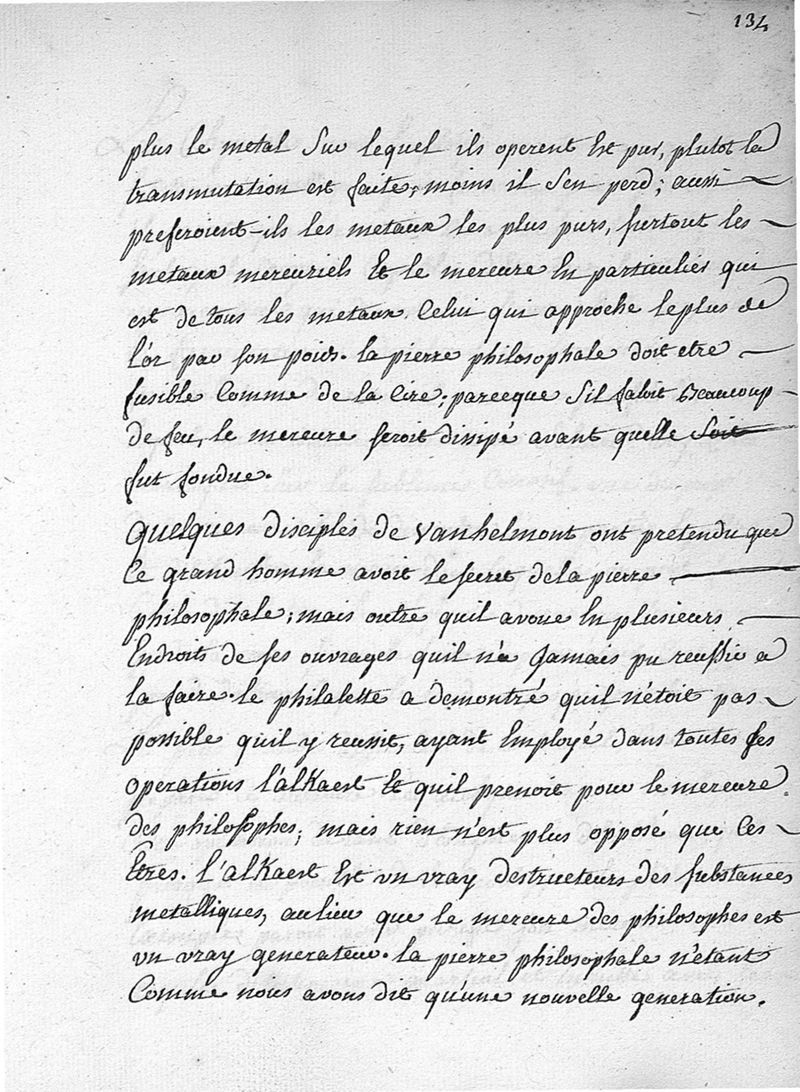 134
plus le metal sur lequel ils operent est pur, plutot la
transmutation est faite, moins il s'en perd; aussi
preferoient-ils les metaux les plus purs, surtout les
metaux mercuriels et le mercure en particulier qui
est de tous les metaux celui qui approche le plus de
l'or par son poids. la pierre philosophale doit etre
fusible comme de la cire; parceque s'il faloit beaucoup
de feu, le mercure seroit dissipé avant quelle soit
fut fondue.
quelques disciples de Vanhelmont ont pretendu que
ce grand homme avoit le secret de la pierre
philosophale; mais outre quil avoue en plusieurs
endroits de ses ouvrages quil n'a jamais pu reussir a
la faire. le philalette a demontré quil n'étoit pas
possible quil y reussit, ayant employé dans toutes ses
operations l'alkaest et quil prenoit pour le mercure
des philosophes; mais rien n'est plus opposé que ces
êtres. l'alkaest est un vray destructeurs des substances
metalliques, aulieu que le mercure des philosophes est
un vray generateur. la pierre philosophale n'étant
comme nous avons dit qu'une nouvelle generation.